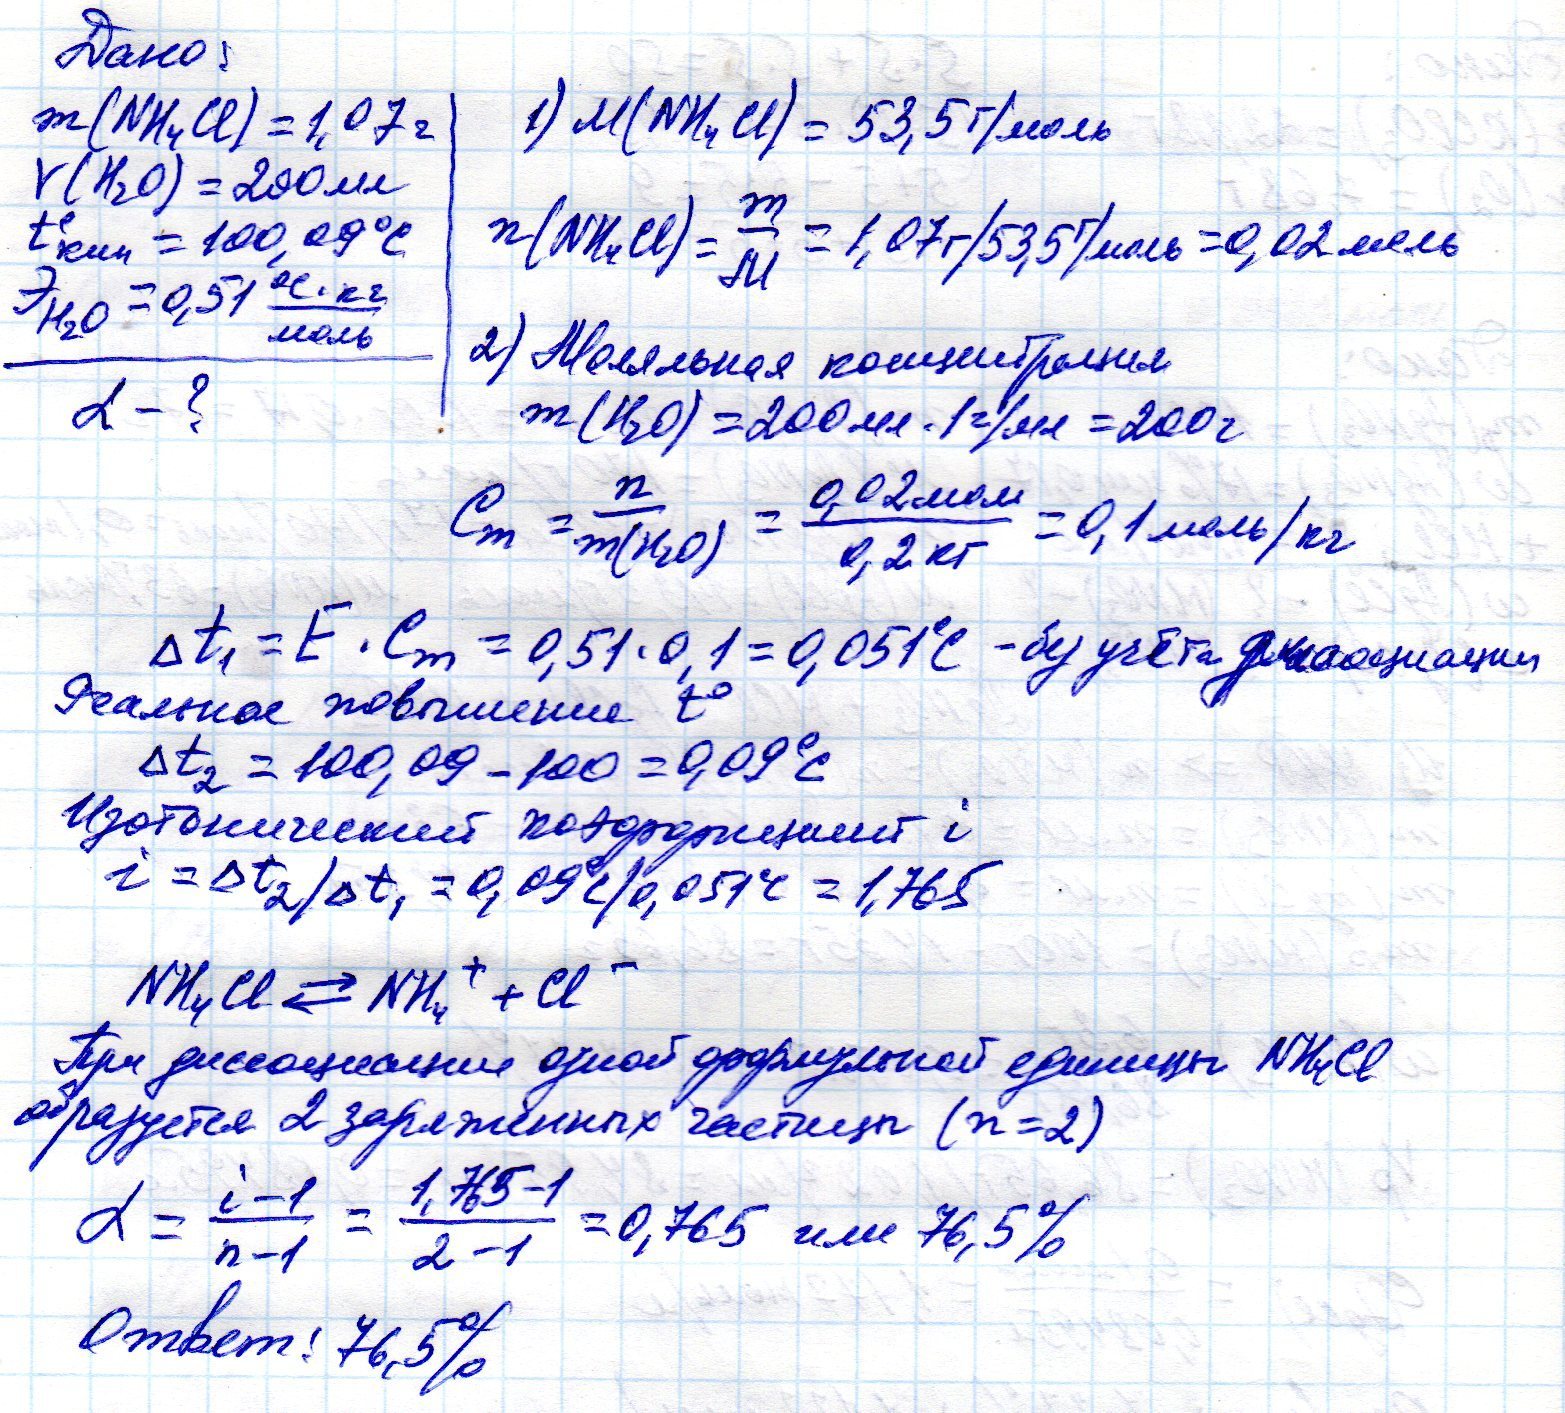 Дано:
m(NH₄Cl) = 1,07г
V(H₂O) = 200мл
t°кип = 100,09°C
Э H₂O = 0,51 °C·кг/моль
α – ?
1) M(NH₄Cl) = 53,5г/моль
n(NH₄Cl) = m/M = 1,07г/53,5г/моль = 0,02моль
2) Моляльная концентрация
m(H₂O) = 200мл · 1г/мл = 200г
Cm = n/m(H₂O) = 0,02моль/0,2кг = 0,1моль/кг
Δt₁ = E · Cm = 0,51 · 0,1 = 0,051°C – без учёта диссоциации
Реальное повышение t°
Δt₂ = 100,09 – 100 = 0,09°C
Изотонический коэффициент i
i = Δt₂/Δt₁ = 0,09°C/0,051°C = 1,765
NH₄Cl ⇄ NH₄⁺ + Cl⁻
При диссоциации одной формульной единицы NH₄Cl
образуется 2 заряженных частицы (n=2)
α = i–1/n–1 = 1,765–1/2–1 = 0,765 или 76,5%
Ответ: 76,5%